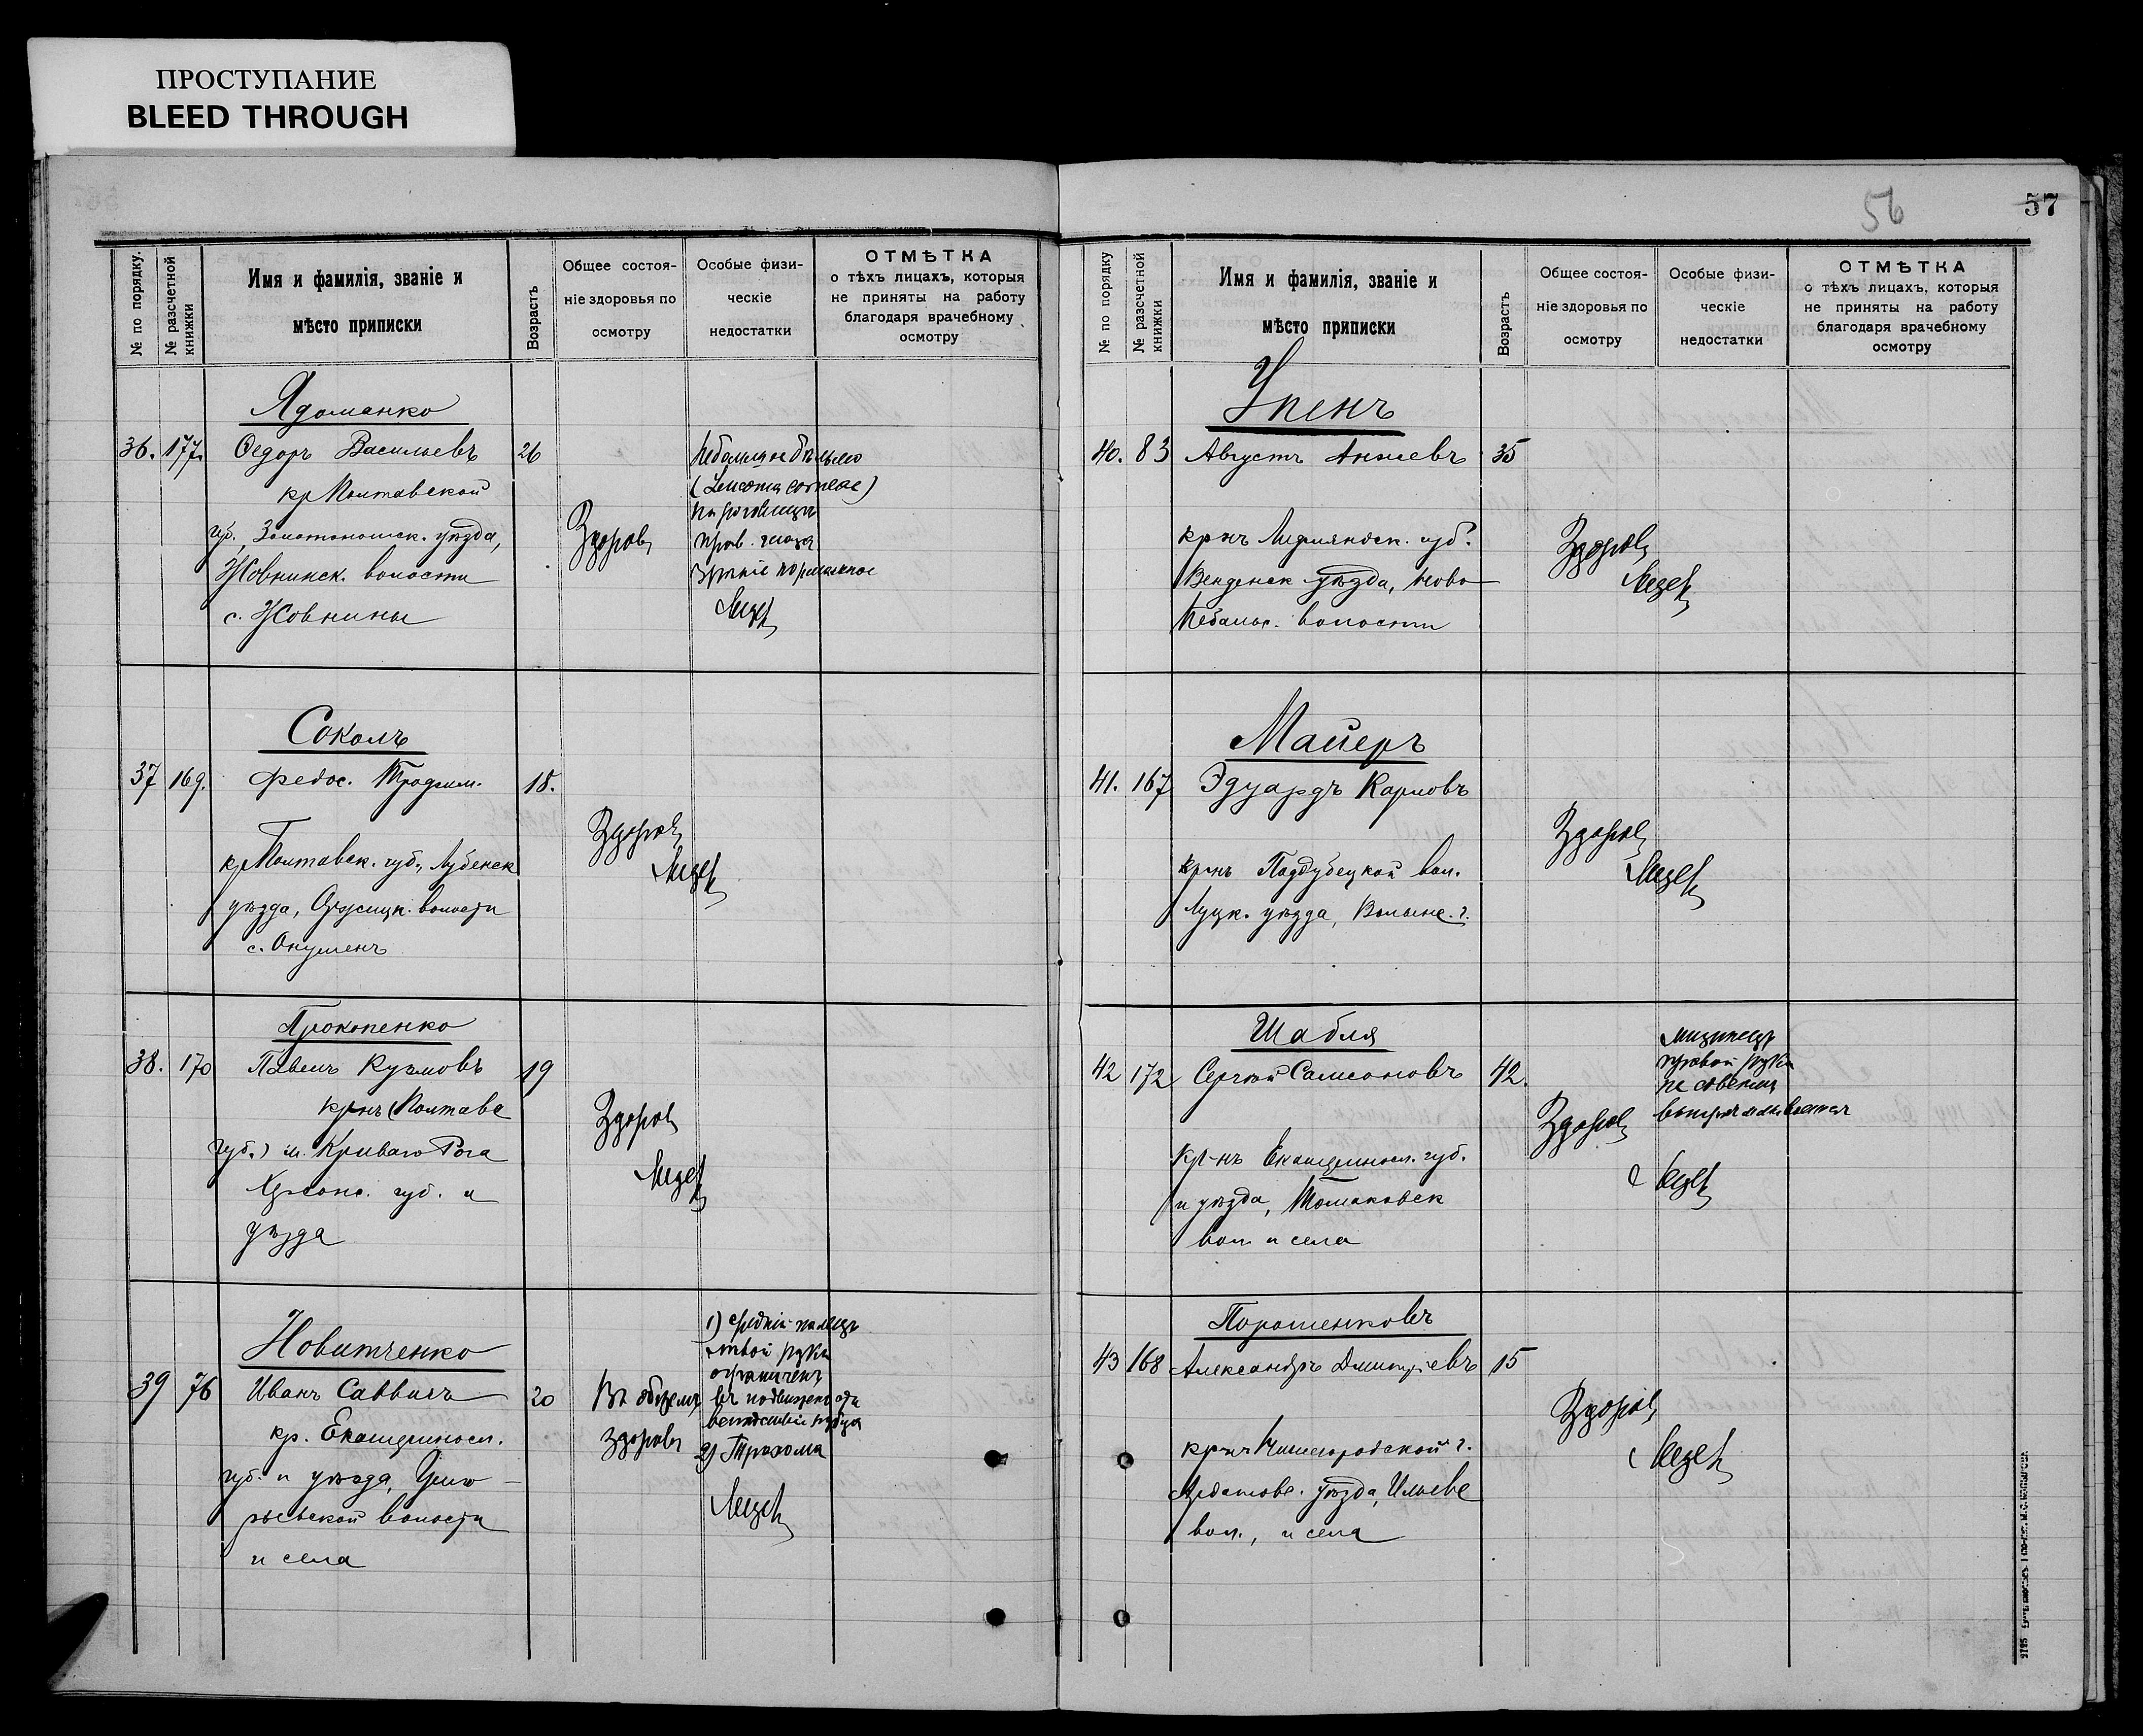 ПРОСТУПАНИЕ
BLEED THROUGH
№ по порядку.
№ разсчетной книжки
Имя и фамилія, званіе и
мѣсто приписки
Возрасть
Общее состоя-
ніе здоровья по
осмотру
Особые физи-
ческіе
недостатки
ОТМѢТКА
о тѣхъ лицахъ, которыя
не приняты на работу
благодаря врачебному
осмотру
Ядоманко
36. 177. Ѳедоръ Васильевъ 26
кр Полтавской
губ., Золотоношск. уѣзда,
Жовнинск. волости
с. Жовнины
Здоровъ
Небольшое бѣльмо
(Leucoma corneae)
на роговицѣ
прав. глаза
зрѣніе нормальное
Соколъ
37 169. Федос. Трофим. 18.
кр Полтавск. губ., Лубенск
уѣзда, волости
с.
Здоровъ
Прокопенко
38. 170 Павелъ Кузьмовъ 19
крнъ Полтавс
губ.) м. Криваго Рога
Херсонс. губ. и
уѣзда
Здоровъ
Новитченко
39 76 Иванъ Саввичъ 20
кр. Екатериносл.
губ. и уѣзда, Григо-
рьевской волости
и села
Въ общемъ
здоровъ
1) средній палецъ
лѣвой руки
ограниченъ
въ подвижности
вслѣдствіе рубца
2) Трахома
56
57
№ по порядку
№ разсчетной книжки
Имя и фамилія, званіе и
мѣсто приписки
Возрасть
Общее состоя-
ніе здоровья по
осмотру
Особые физи-
ческіе
недостатки
ОТМѢТКА
о тѣхъ лицахъ, которыя
не приняты на работу
благодаря врачебному
осмотру
Упенъ
40. 83 Августъ Аншевъ 35
крнъ Лифляндск. губ.
Венденск уѣзда, Ново-
Пебальс. волости
Здоровъ
Майеръ
41. 167 Эдуардъ Карловъ
кр-нъ Поддубецкой вол.
Луцк. уѣзда, Волынс. г.
Здоровъ
Шабля
42 172 Сергѣй Самсоновъ 42.
Кр-нъ Екатериносл. губ.
и уѣзда, Томаковск
вол. и села
Здоровъ
мизинецъ
правой руки
не совсѣмъ
Порошенковъ
43 168 Александръ Дмитріевъ 15
крнъ Нижегородской г.
Ардатовс. уѣзда, Ильевс
вол., и села
Здоровъ